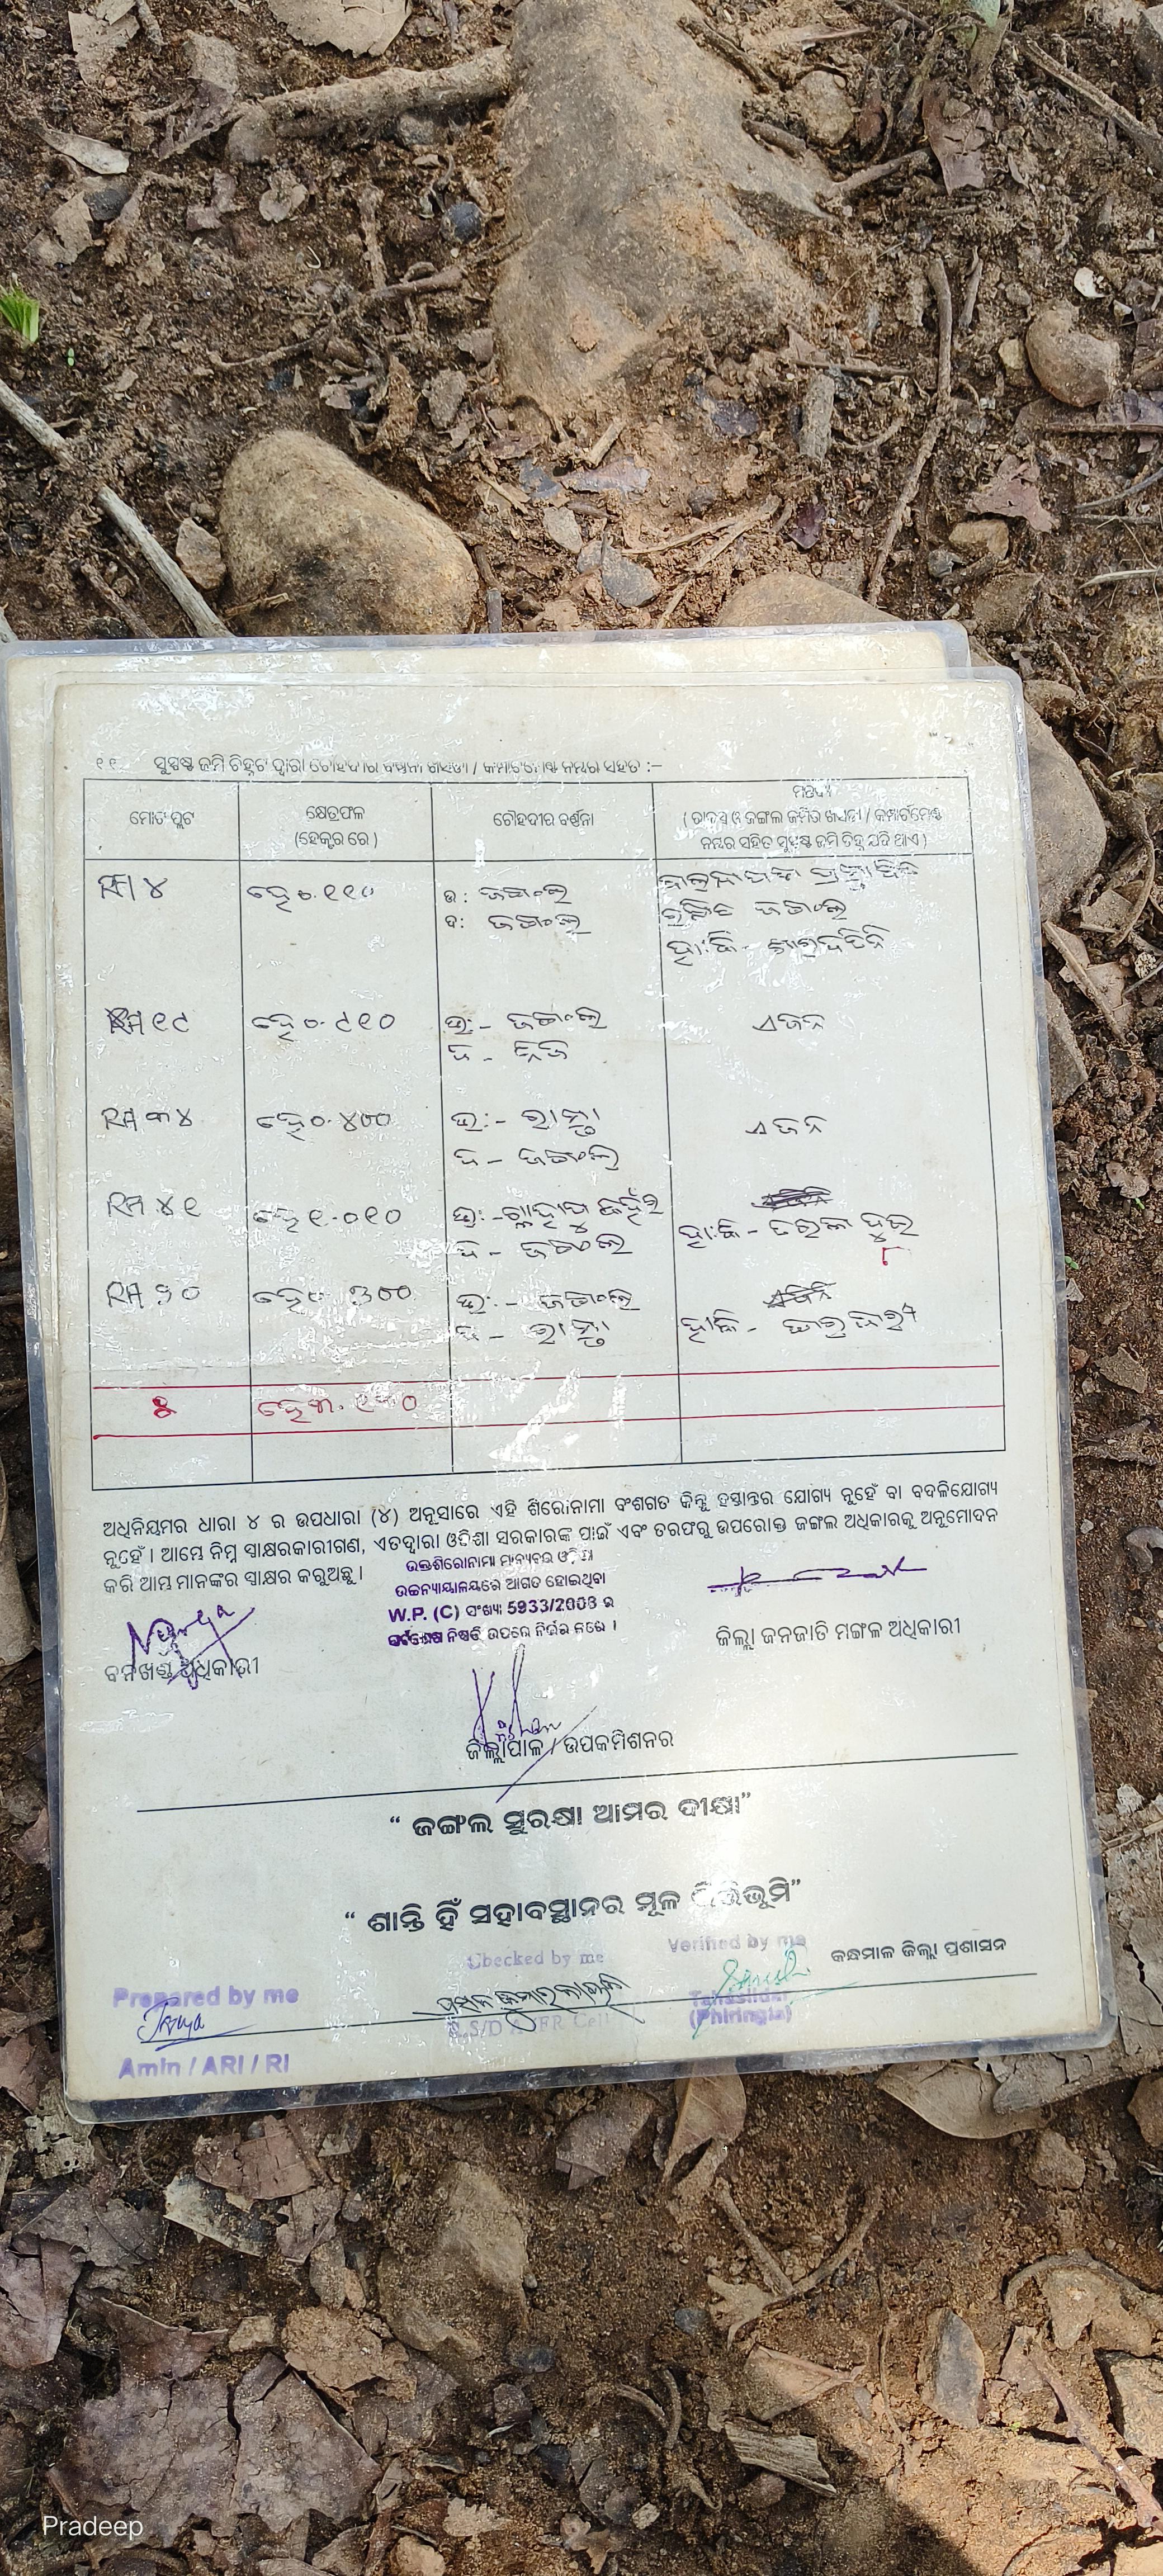 ୧୧ ସୁସ୍ପଷ୍ଟ ଜମି ଚିହ୍ନଟ ଦ୍ୱାରା ଚୌହଦୀର ବର୍ଣ୍ଣନା ଖସଡା / କମ୍ପାର୍ଟମେଣ୍ଟ ନମ୍ବର ସହିତ :–
ମୋଟ ପ୍ଲଟ
କ୍ଷେତ୍ରଫଳ
(ହେକ୍ଟର ରେ )
ଚୌହଦୀର ବର୍ଣ୍ଣନା
ମନ୍ତବ୍ୟ
( ରାଜସ୍ୱ ଓ ଜଙ୍ଗଲ ଜମିର ଖସଡା / କମ୍ପାର୍ଟମେଣ୍ଟ
ନମ୍ବର ସହିତ ସୁସ୍ପଷ୍ଟ ଜମି ଚିହ୍ନ ଯଦି ଥାଏ )
RA ୪ ହେ ୦.୧୧୦ ଉ: ଜଙ୍ଗଲ
ଦ: ଜଙ୍ଗଲ
ରକ୍ଷିତ ଜଙ୍ଗଲ
RA ୧୯ ହେ ୦.୯୧୦ ଉ:- ଜଙ୍ଗଲ ଏଜନ
ଦ - ନିଜ
RA ୩୪ ହେ ୦.୪୦୦ ଉ:- ରାସ୍ତା ଏଜନ
ଦ - ଜଙ୍ଗଲ
RA ୪୧ ହେ ୧.୦୧୦ ଉ:-
ଦ - ଜଙ୍ଗଲ
RA ୨୦ ହେ ୦.୭୦୦ ଉ:- ଜଙ୍ଗଲ
ଦ - ରାସ୍ତା
୫ ହେ ୩.୧୩୦
ଅଧିନିୟମର ଧାରା ୪ ର ଉପଧାରା (୪) ଅନୁସାରେ ଏହି ଶିରୋନାମା ବଂଶଗତ କିନ୍ତୁ ହସ୍ତାନ୍ତର ଯୋଗ୍ୟ ନୁହେଁ ବା ବଦଳିଯୋଗ୍ୟ
ନୁହେଁ । ଆମ୍ଭେ ନିମ୍ନ ସ୍ୱାକ୍ଷରକାରୀଗଣ, ଏତଦ୍ୱାରା ଓଡିଶା ସରକାରଙ୍କ ପାଇଁ ଏବଂ ତରଫରୁ ଉପରୋକ୍ତ ଜଙ୍ଗଲ ଅଧିକାରକୁ ଅନୁମୋଦନ
କରି ଆମ୍ଭ ମାନଙ୍କର ସ୍ୱାକ୍ଷର କରୁଅଛୁ ।
ଉକ୍ତ ଶିରୋନାମା ମାନ୍ୟବର ଓଡ଼ିଶା
ଉଚ୍ଚନ୍ୟାୟାଳୟରେ ଆଗତ ହୋଇଥିବା
W.P. (C) ସଂଖ୍ୟା 5933/2008 ର
ସର୍ବଶେଷ ନିଷ୍ପତ୍ତି ଉପରେ ନିର୍ଭର କରେ ।
ବନଖଣ୍ଡ ଅଧିକାରୀ
ଜିଲ୍ଲା ଜନଜାତି ମଙ୍ଗଳ ଅଧିକାରୀ
ଜିଲ୍ଲାପାଳ / ଉପକମିଶନର
“ ଜଙ୍ଗଲ ସୁରକ୍ଷା ଆମର ଦୀକ୍ଷା”
“ ଶାନ୍ତି ହିଁ ସହାବସ୍ଥାନର ମୂଳ ଭିତ୍ତିଭୂମି”
କନ୍ଧମାଳ ଜିଲ୍ଲା ପ୍ରଶାସନ
Prepared by me
Amin / ARI / RI
Checked by me
Verified by me
Tahasildar
(Phiringia)
Pradeep